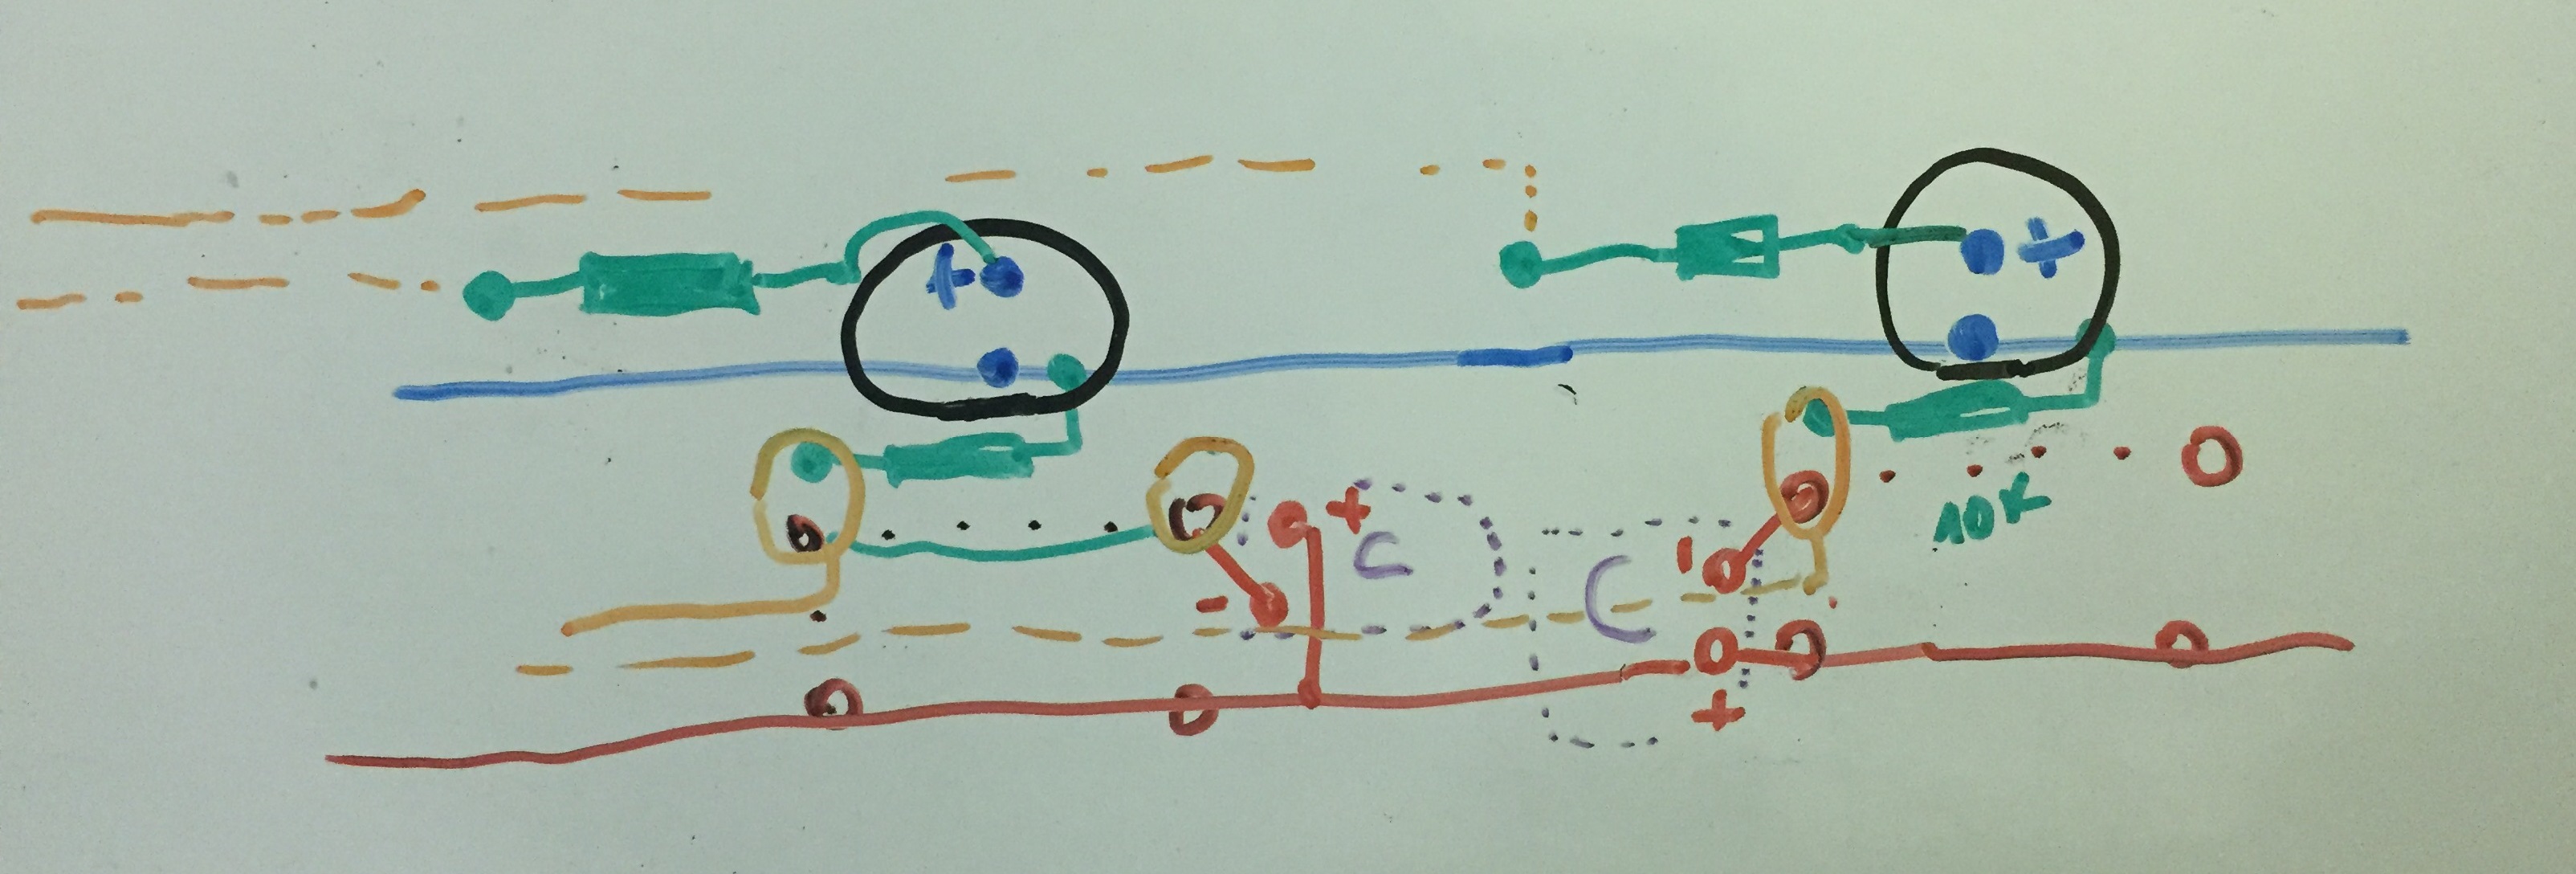 +
+
+
C
C
-
-
10K
+